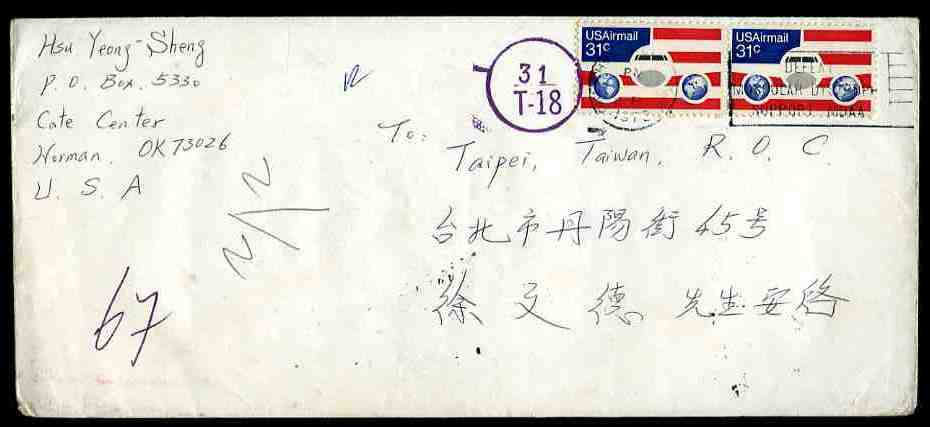 Hsu Yeong-Sheng
P. O. Box. 5330
Cate Center
Norman, OK 73026
U. S. A
31
T-18
USAirmail
31c
USAirmail
31c
PM
DEFEAT
SUPPORT MDAA
To:
Taipei, Taiwan, R. O. C.
台北市丹陽街45号
徐文德 先生安啓
N/2
67